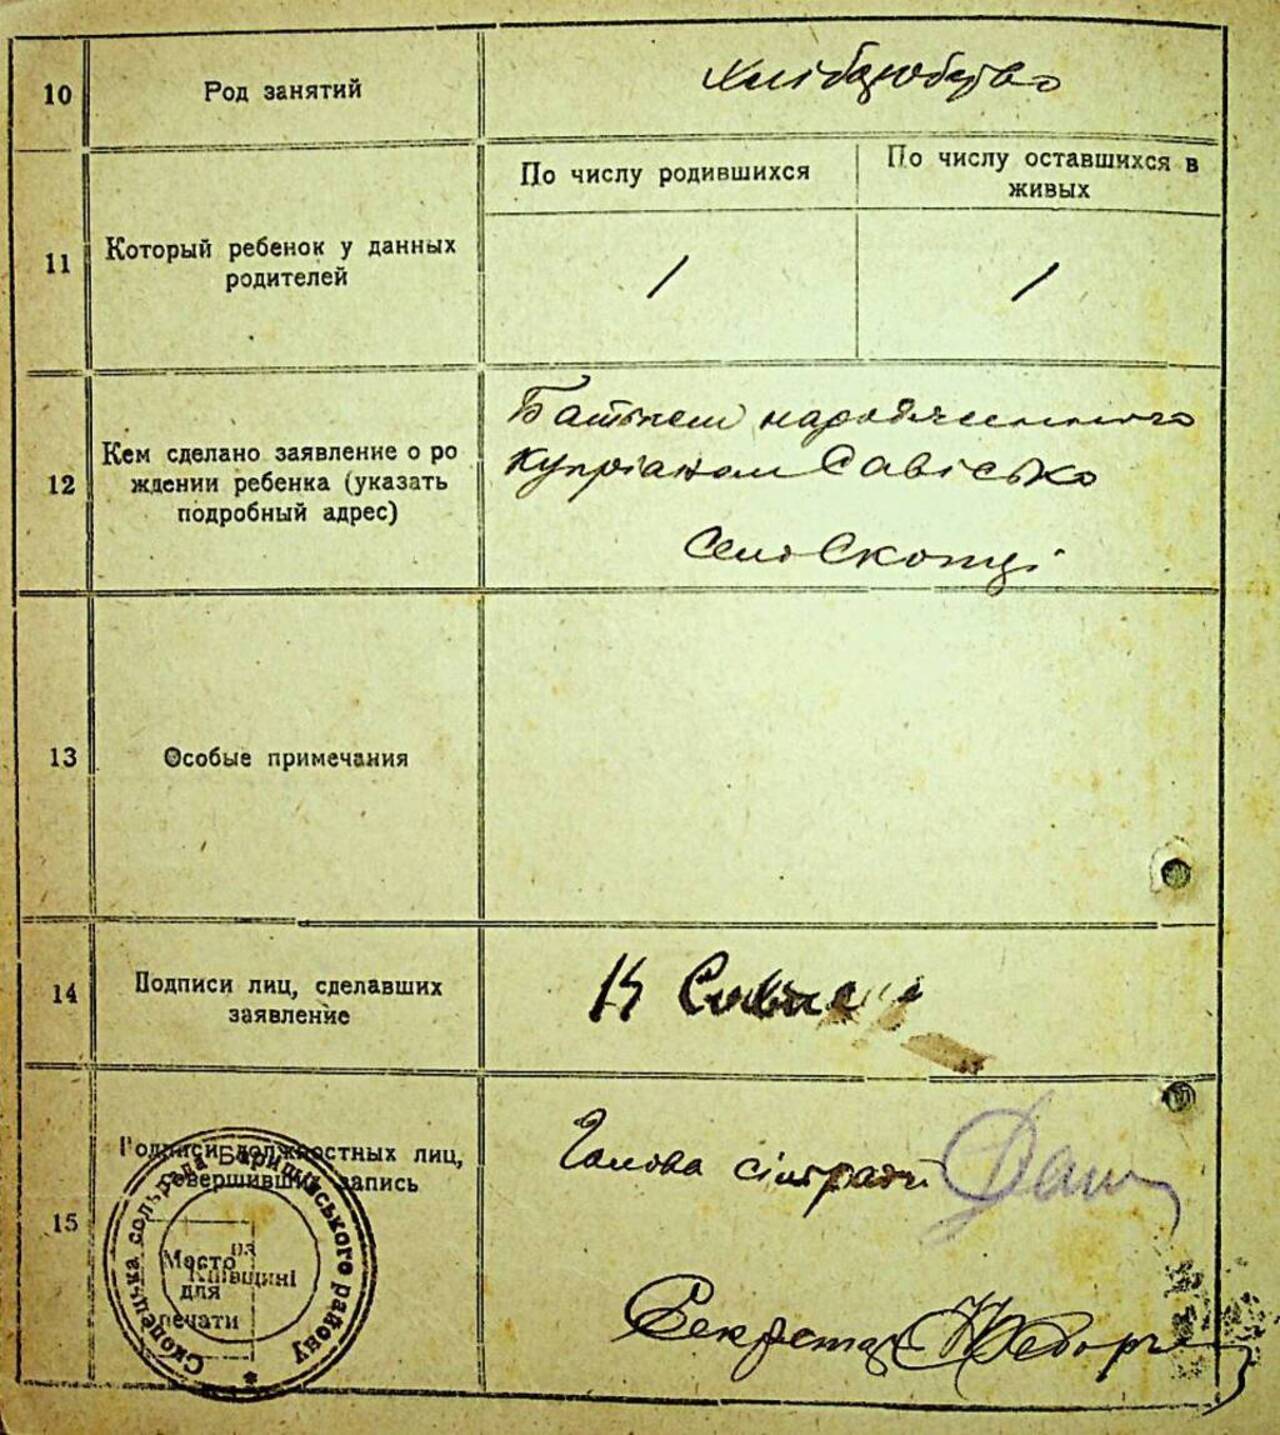 10
Род занятий
Хліборобство
11
Который ребенок у данных
родителей
По числу родившихся
По числу оставшихся в
живых
1
1
12
Кем сделано заявление о ро
ждении ребенка (указать
подробный адрес)
Батьком народженного
Купріаном Савісько
Село Скопці
13
Особые примечания
14
Подписи лиц, сделавших
заявление
К Сав
15
Подписи должностных лиц,
совершивших запись
Голова сільради
Секретар
Скопецька сольрада Баришівського району
на
Київщині
Место
для
печати